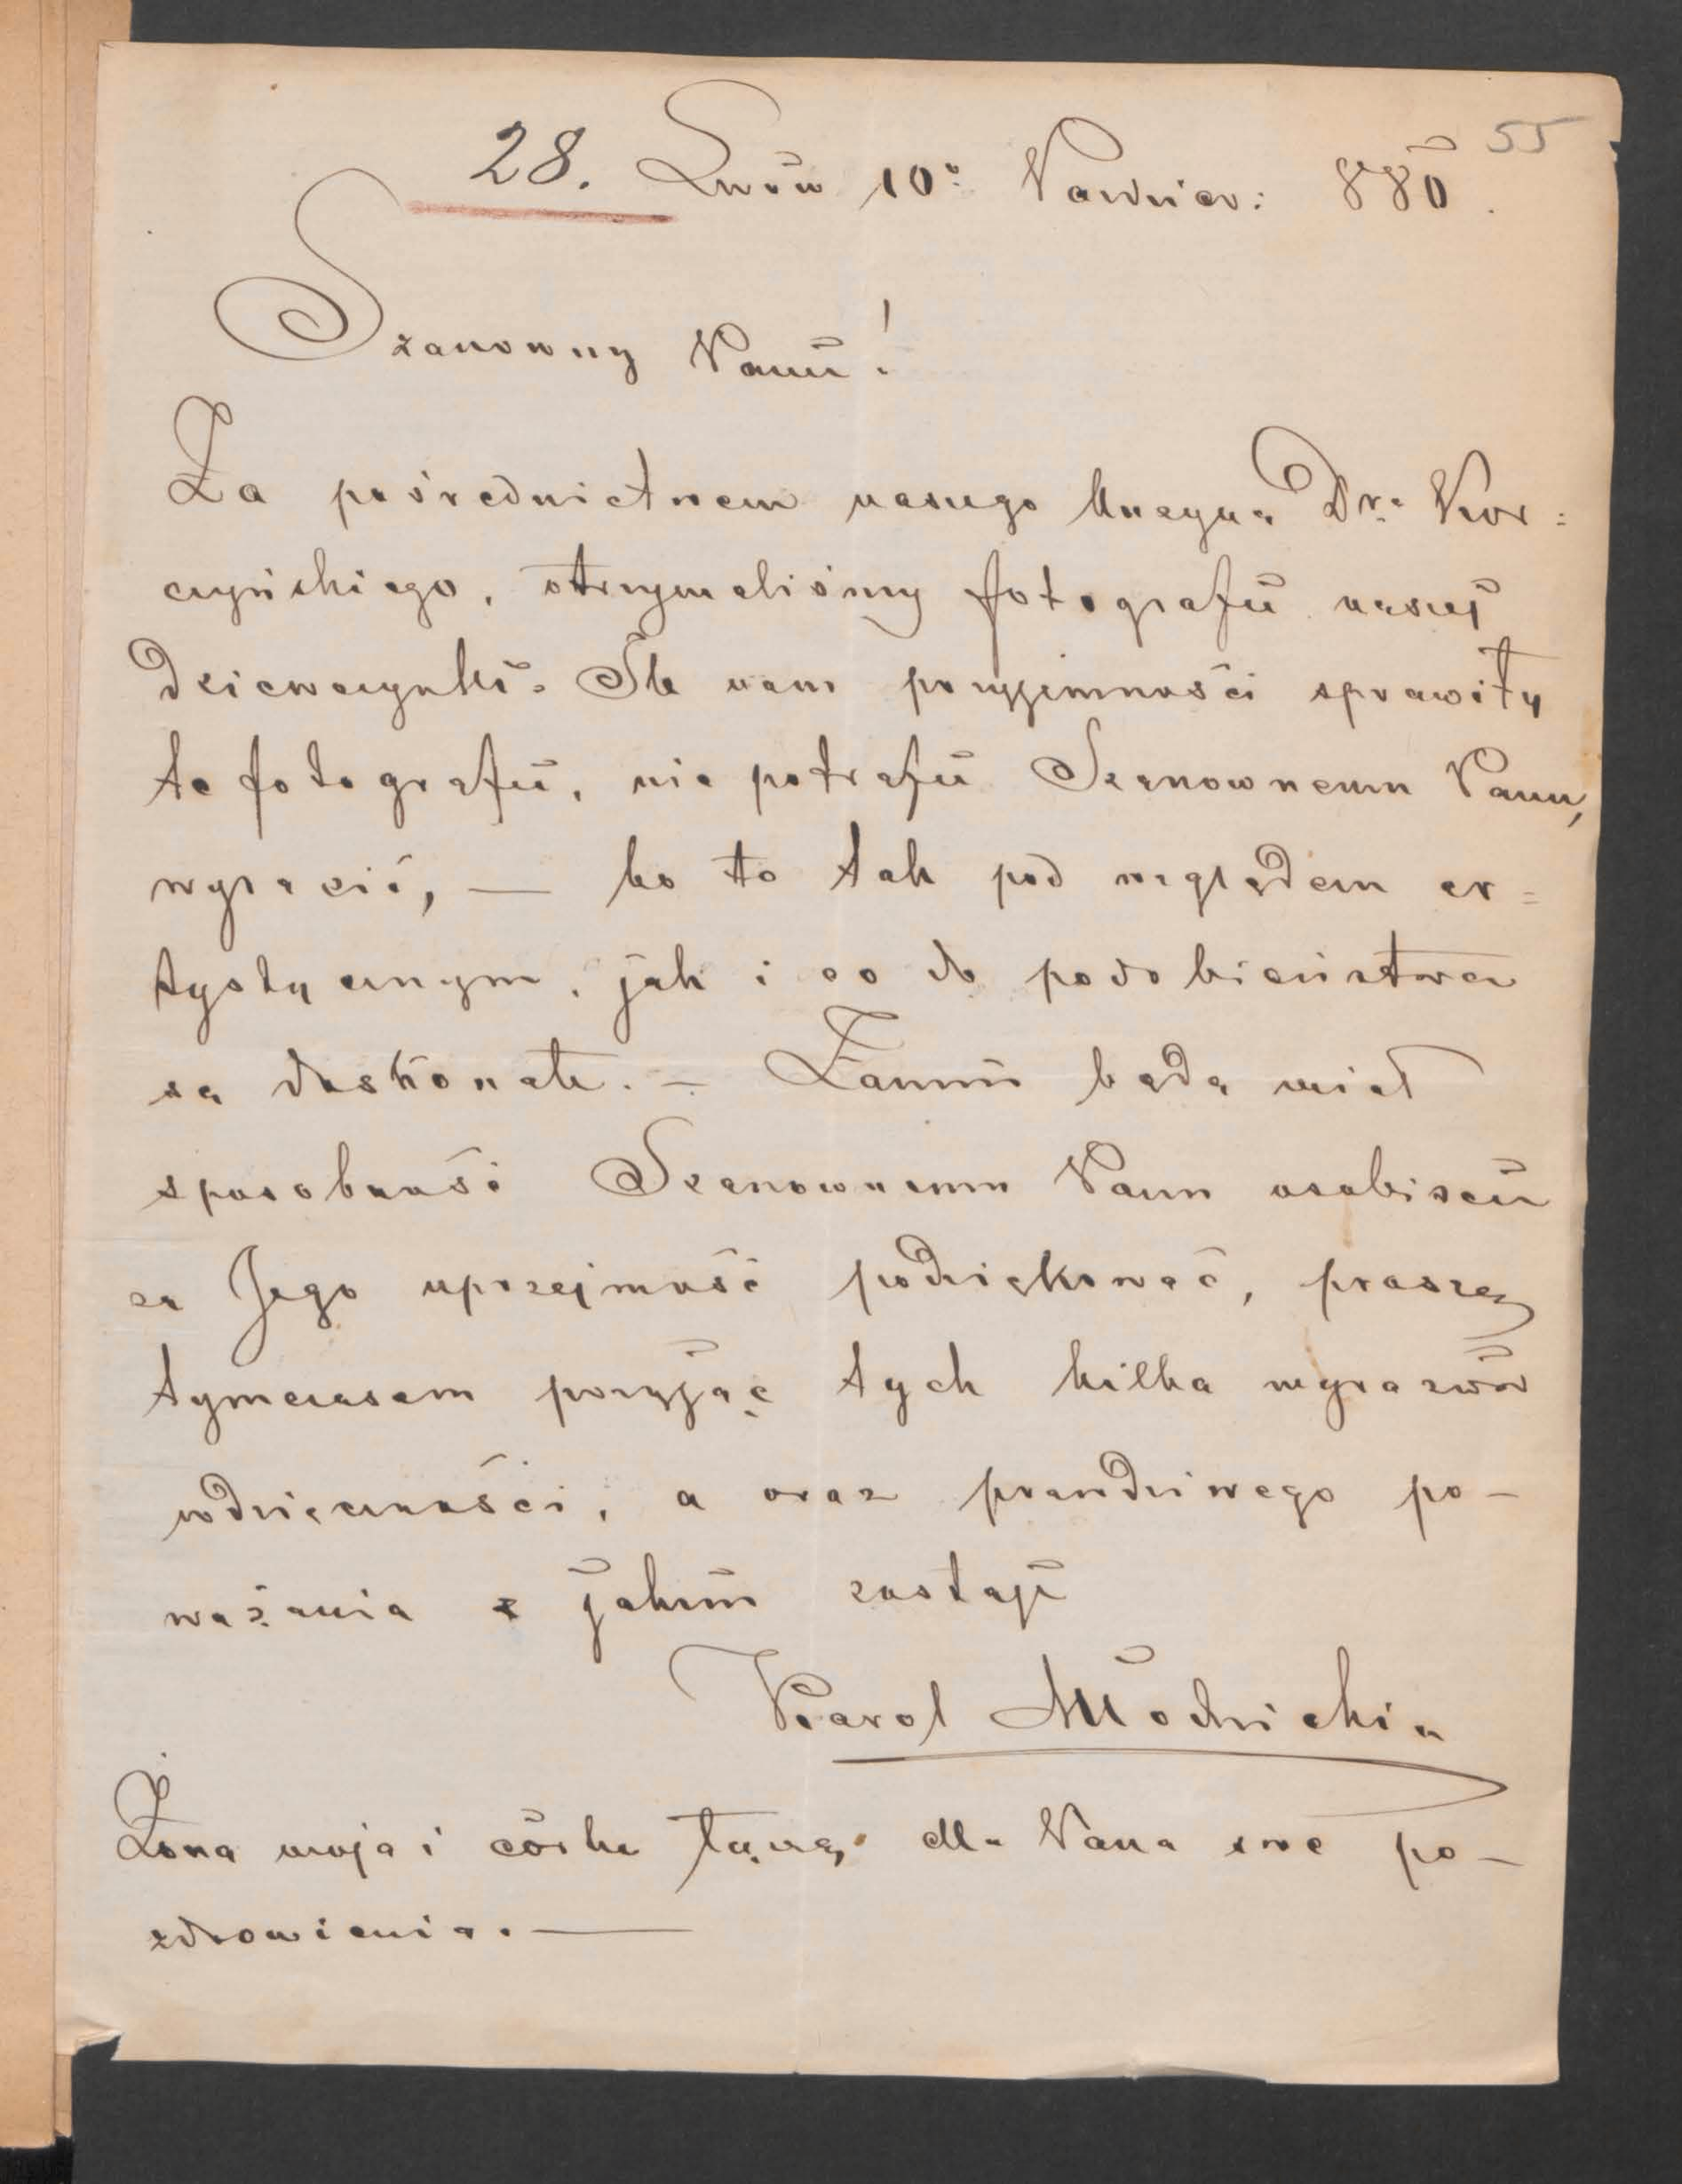 55
28. Lwów 10º Paździer: 880.
Szanowny Panie!
Za pośrednictwem naszego Kuzyna Dra Kor=
czyńskiego, otrzymaliśmy fotografie naszej
dziewczynki. Ile nam przyjemności sprawiły
te fotografie, nie potrafię Szanownemu Panu,
wyrazić, — bo to tak pod względem ar=
tystycznym, jak i co do podobieństwa
są doskonałe. — Zanim będę miał
sposobność Szanownemu Panu osobiście
za Jego uprzejmość podziękować, proszę
tymczasem przyjąć tych kilka wyrazów
wdzięczności, a oraz prawdziwego po-
ważania z jakim zostaję
Karol Młodnicki
Żona moja i córka łączą dla Pana swe po-
zdrowienia. —